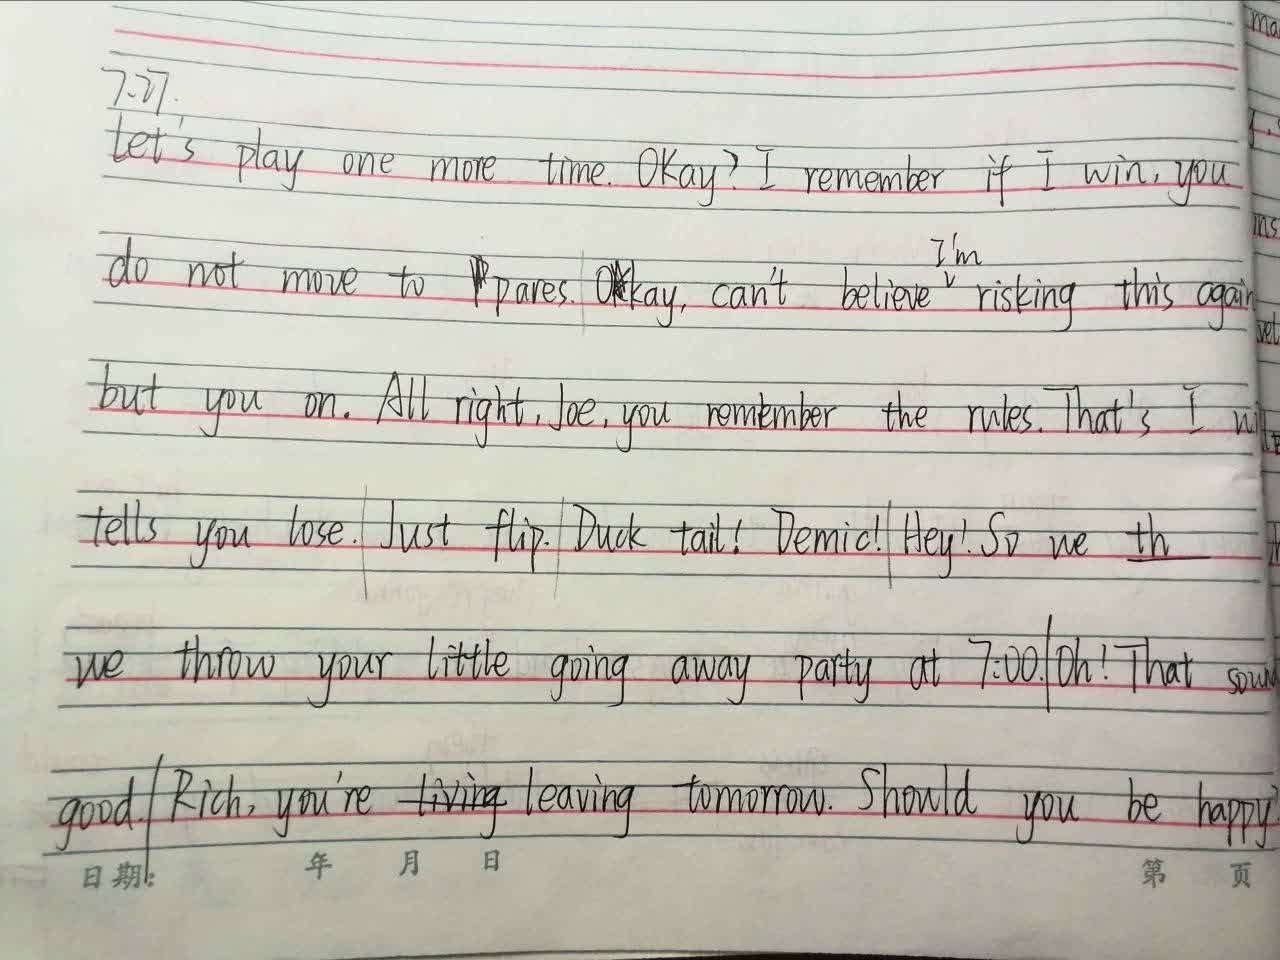 7.27.
Let's play one more time. Okay? I remember if I win, you
do not move to pares. Okay, can't believe I'm risking this again
but you on. All right, Joe, you remember the rules. That's I
tells you lose. Just flip. Duck tail! Demic! Hey! So we th
we throw your little going away party at 7:00. Oh! That
good. Rich, you're living leaving tomorrow. Should you be happy?
日期: 年 月 日 第 页